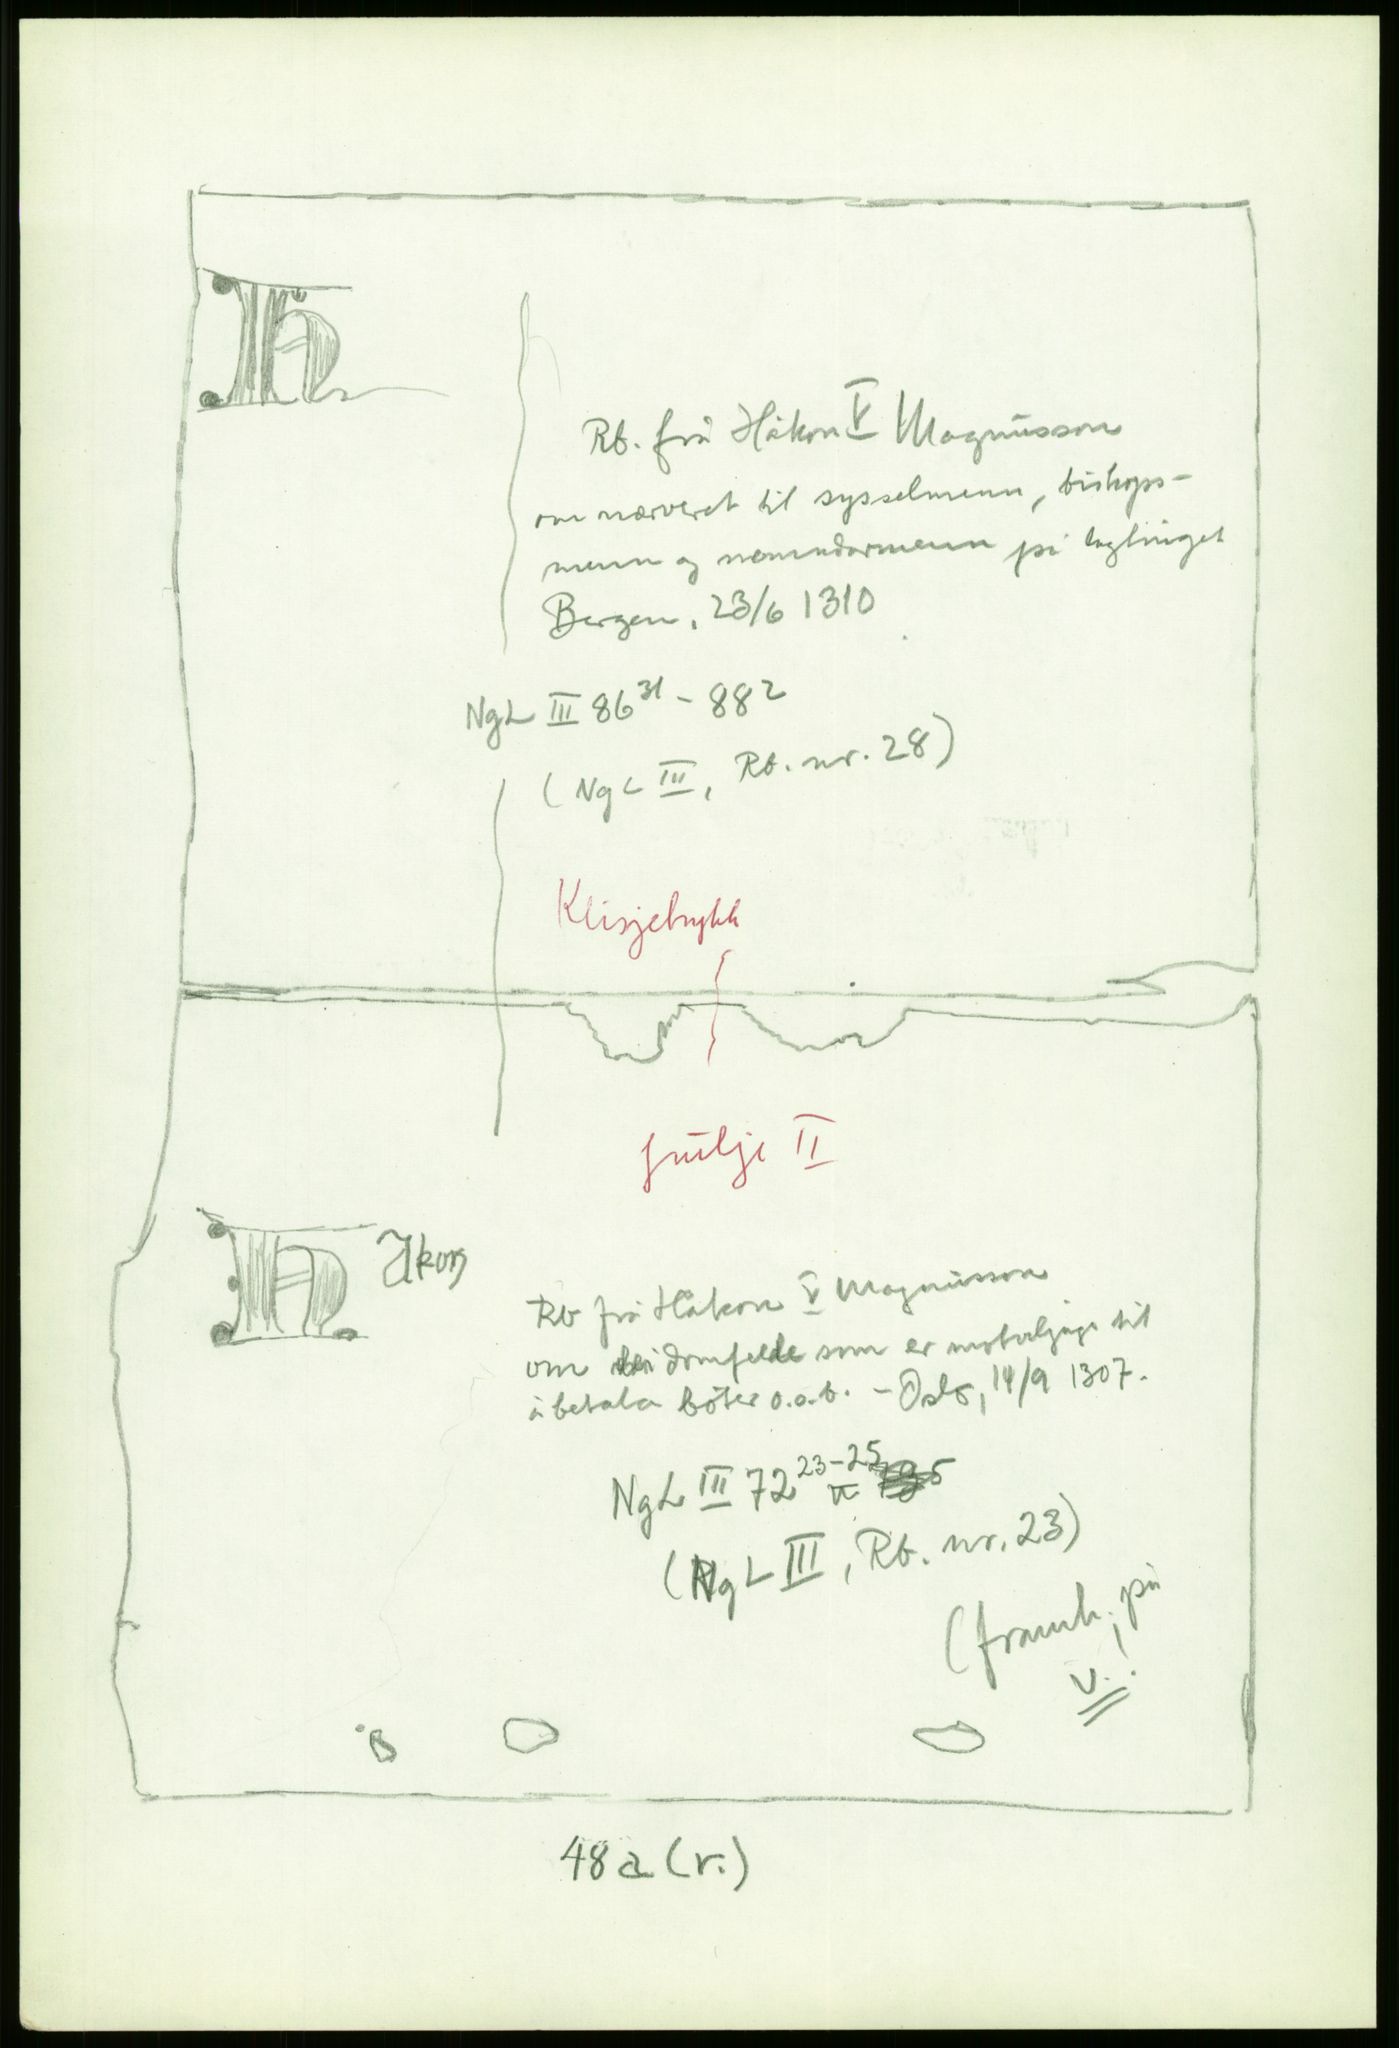 H
Rb. frå Håkon V Magnusson
om nærveret til sysselmenn, biskops-
menn og nemndarmenn på lagtinget
Bergen, 23/6 1310
NgL III 86³¹ – 88²
(NgL III, Rb. nr. 28)
Klisjetrykk
II
H Akon
Rb frå Håkon V Magnusson
om domfelde som er motviljuge til
å betala bøter o.a.b. – Oslo, 14/9 1307.
NgL III 72²³⁻²⁵
(NgL III, Rb. nr. 23)
(framh. på
v.)
48a (r.)